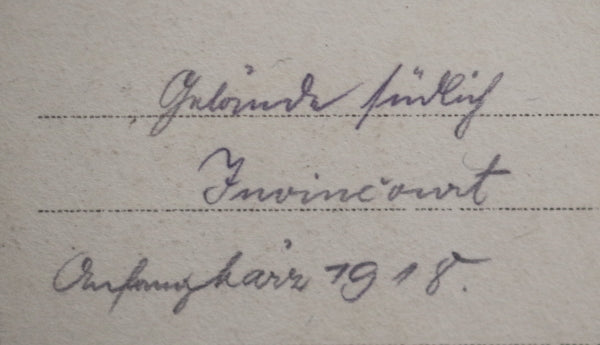 Gelände südlich
Juvincourt
Anfang März 1918.